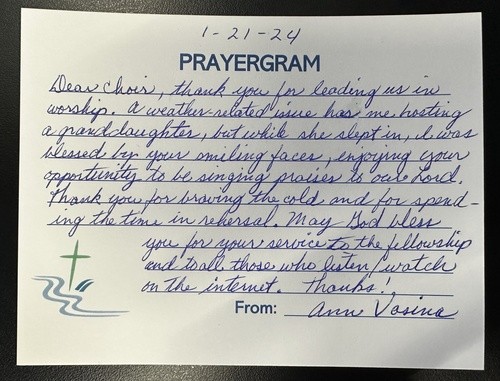 1-21-24
PRAYERGRAM
Dear Choir, thank you for leading us in
worship. A weather-related issue has me hosting
a granddaughter, but while she slept in, I was
blessed by your smiling faces, enjoying your
opportunity to be singing praises to our Lord.
Thank you for braving the cold and for spend-
ing the time in rehersal. May God bless
you for your service to the fellowship
and to all those who listen/watch
on the internet. Thanks!
From: Ann Vosina